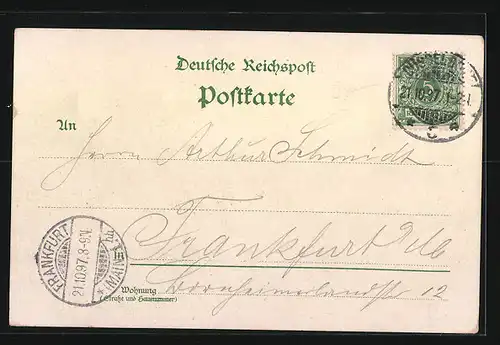 Deutsche Reichspost
Postkarte
DÜSSELDORF
21.10.97.1-2N.
* c *
An
Herrn Arthur Schmidt
Frankfurt a/M
FRANKFURT
21.10.97.8-9N.
(MAIN)
in
Wohnung
(Straße und Hausnummer)
Bornheimerlandstr 12